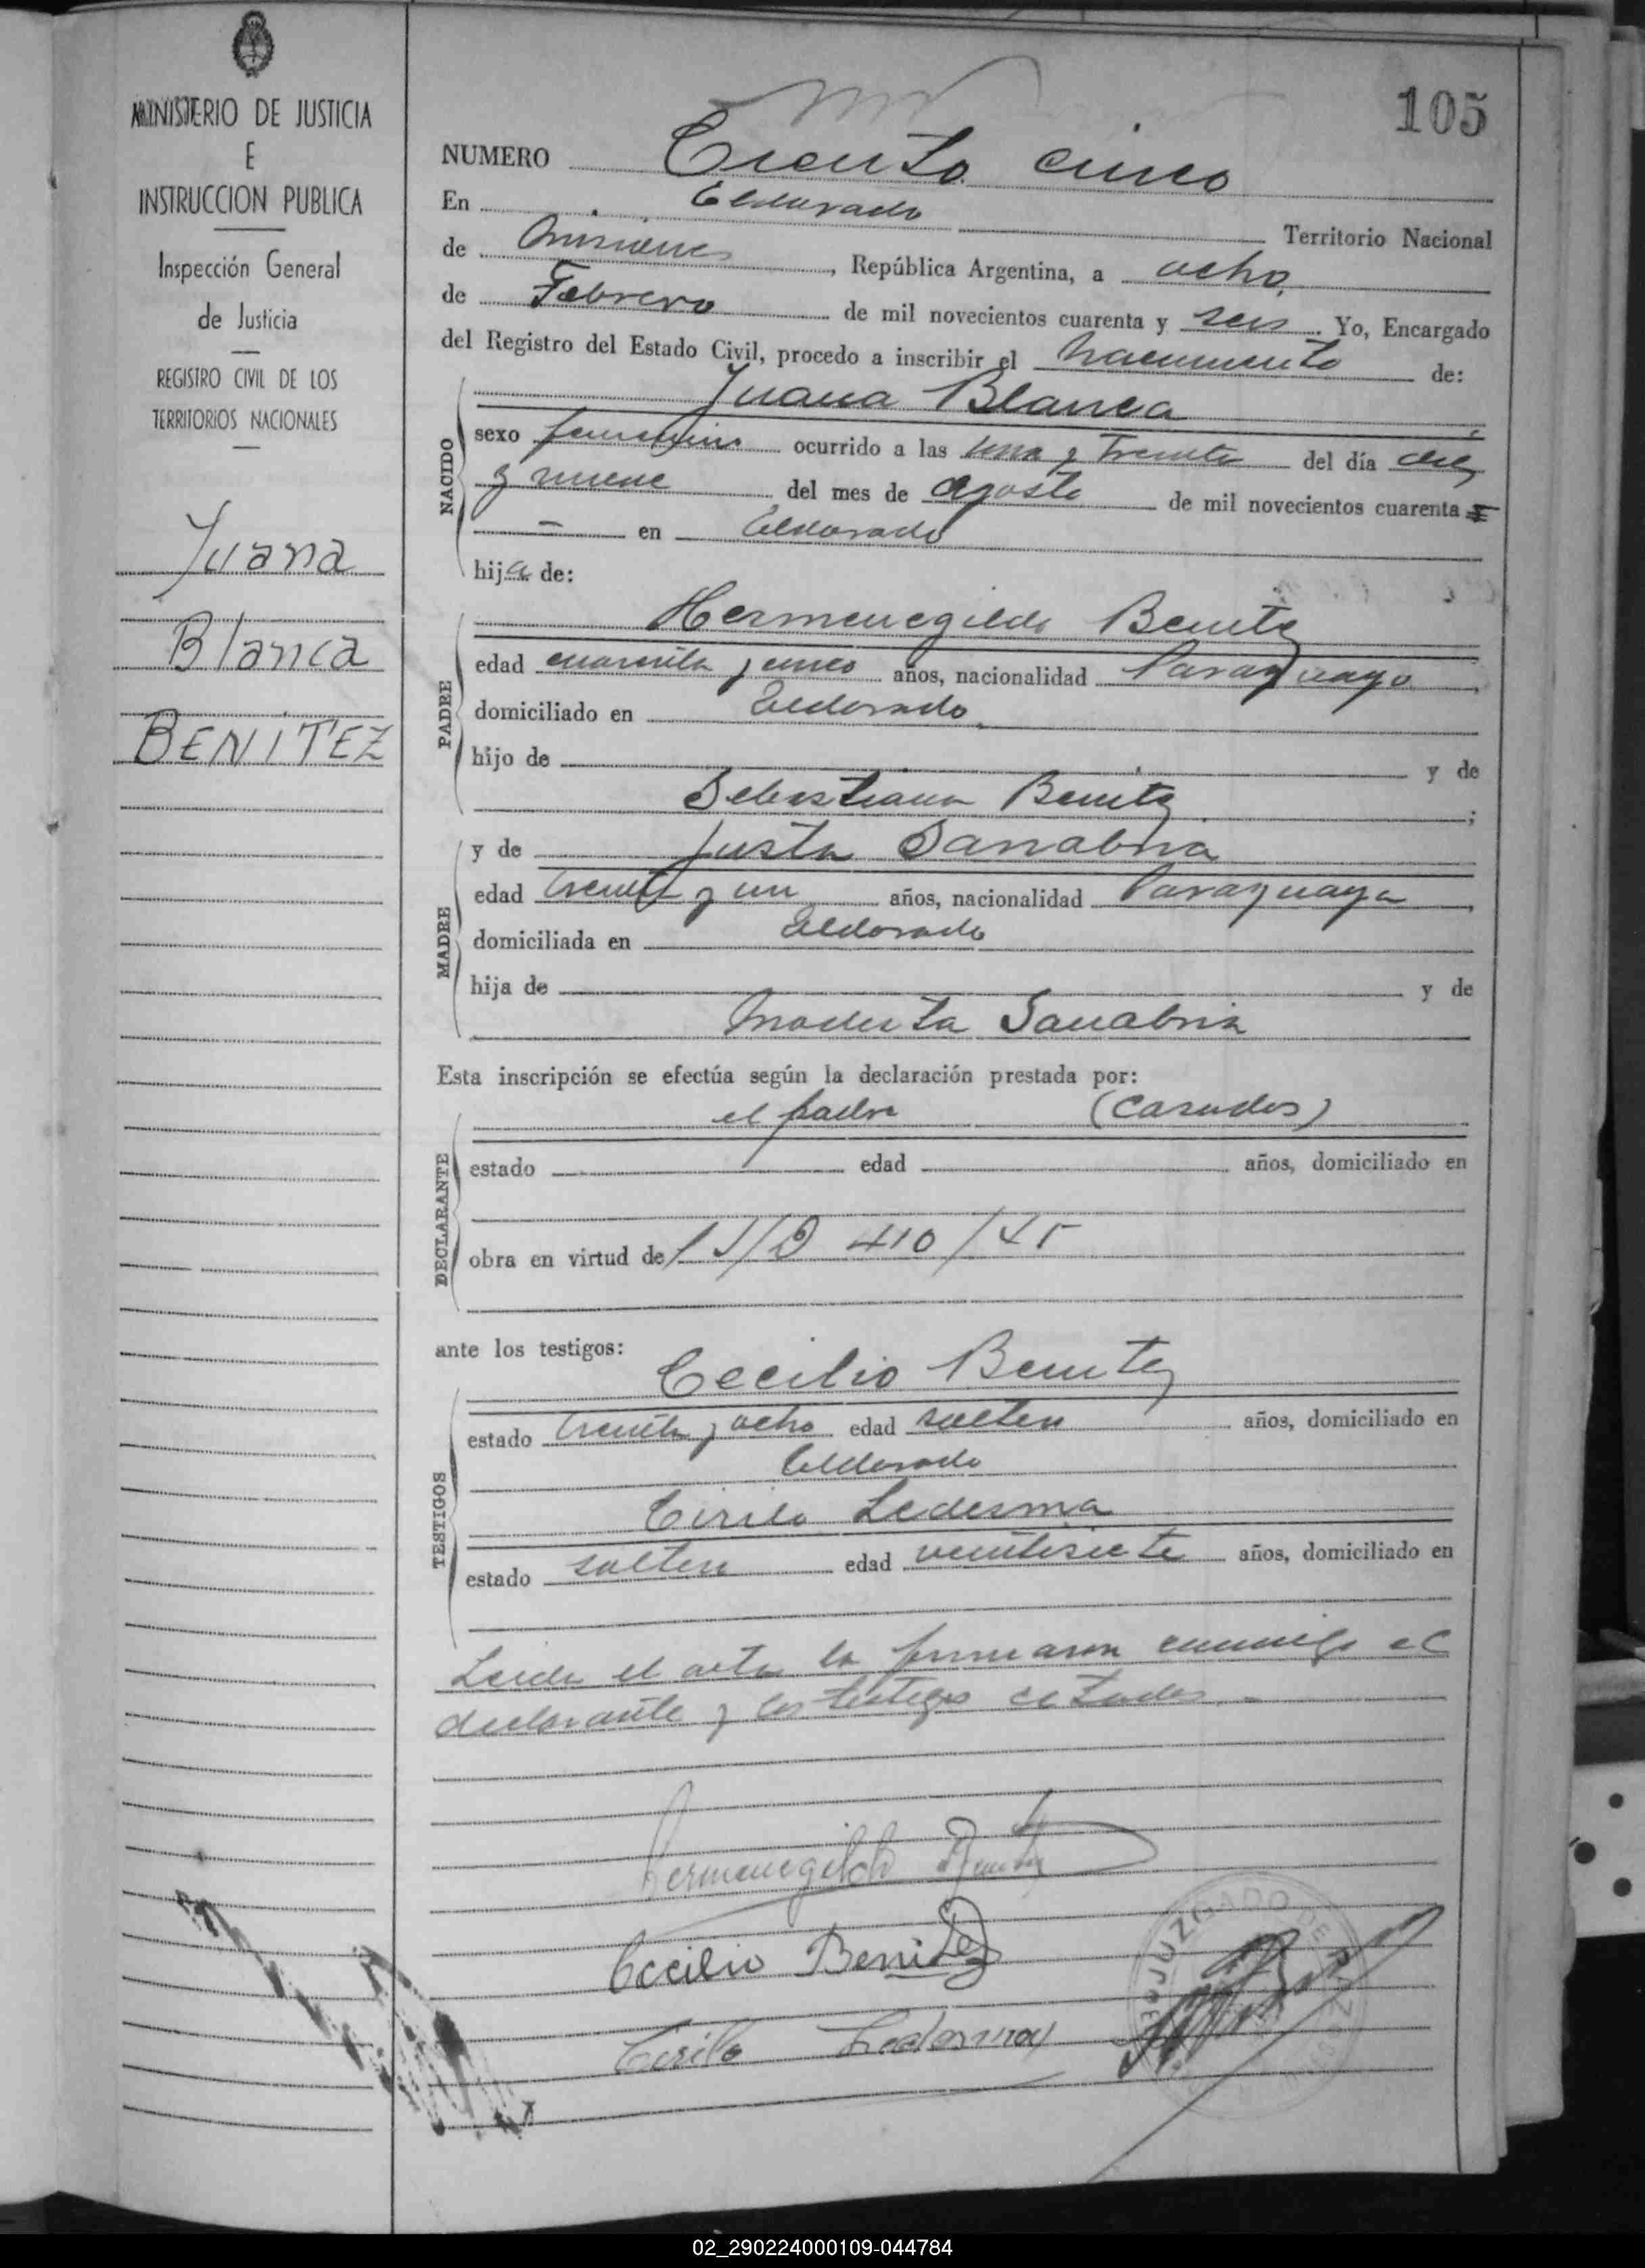 MINISTERIO DE JUSTICIA
E
INSTRUCCION PUBLICA
Inspección General
de Justicia
REGISTRO CIVIL DE LOS
TERRITORIOS NACIONALES
Juana
Blanca
BENITEZ
105
NUMERO Ciento cinco
En Eldorado Territorio Nacional
de Misiones, República Argentina, a ocho
de Febrero de mil novecientos cuarenta y seis. Yo, Encargado
del Registro del Estado Civil, procedo a inscribir el nacimiento de:
NACIDO
Juana Blanca
sexo femenino ocurrido a las una y treinta del día diez
y nueve del mes de agosto de mil novecientos cuarenta
— en Eldorado
hija de:
PADRE
Hermenegildo Benitez
edad cuarenta y cinco años, nacionalidad Paraguayo
domiciliado en Eldorado
hijo de y de
Sebastiana Benitez;
MADRE
y de Justa Sanabria
edad treinta y un años, nacionalidad Paraguaya
domiciliada en Eldorado
hija de y de
Modesta Sanabria
Esta inscripción se efectúa según la declaración prestada por:
DECLARANTE
el padre (casados)
estado edad años, domiciliado en
obra en virtud de 410/45
ante los testigos:
TESTIGOS
Cecilio Benitez
estado treinta y ocho edad soltero años, domiciliado en
Eldorado
Cirilo Ledesma
estado soltero edad veintisiete años, domiciliado en
Leida el acta la firmaron conmigo el
declarante y los testigos citados.-
Hermenegildo Benitez
Cecilio Benitez
Cirilo Ledesma
JUZGADO DE PAZ
02_290224000109-044784